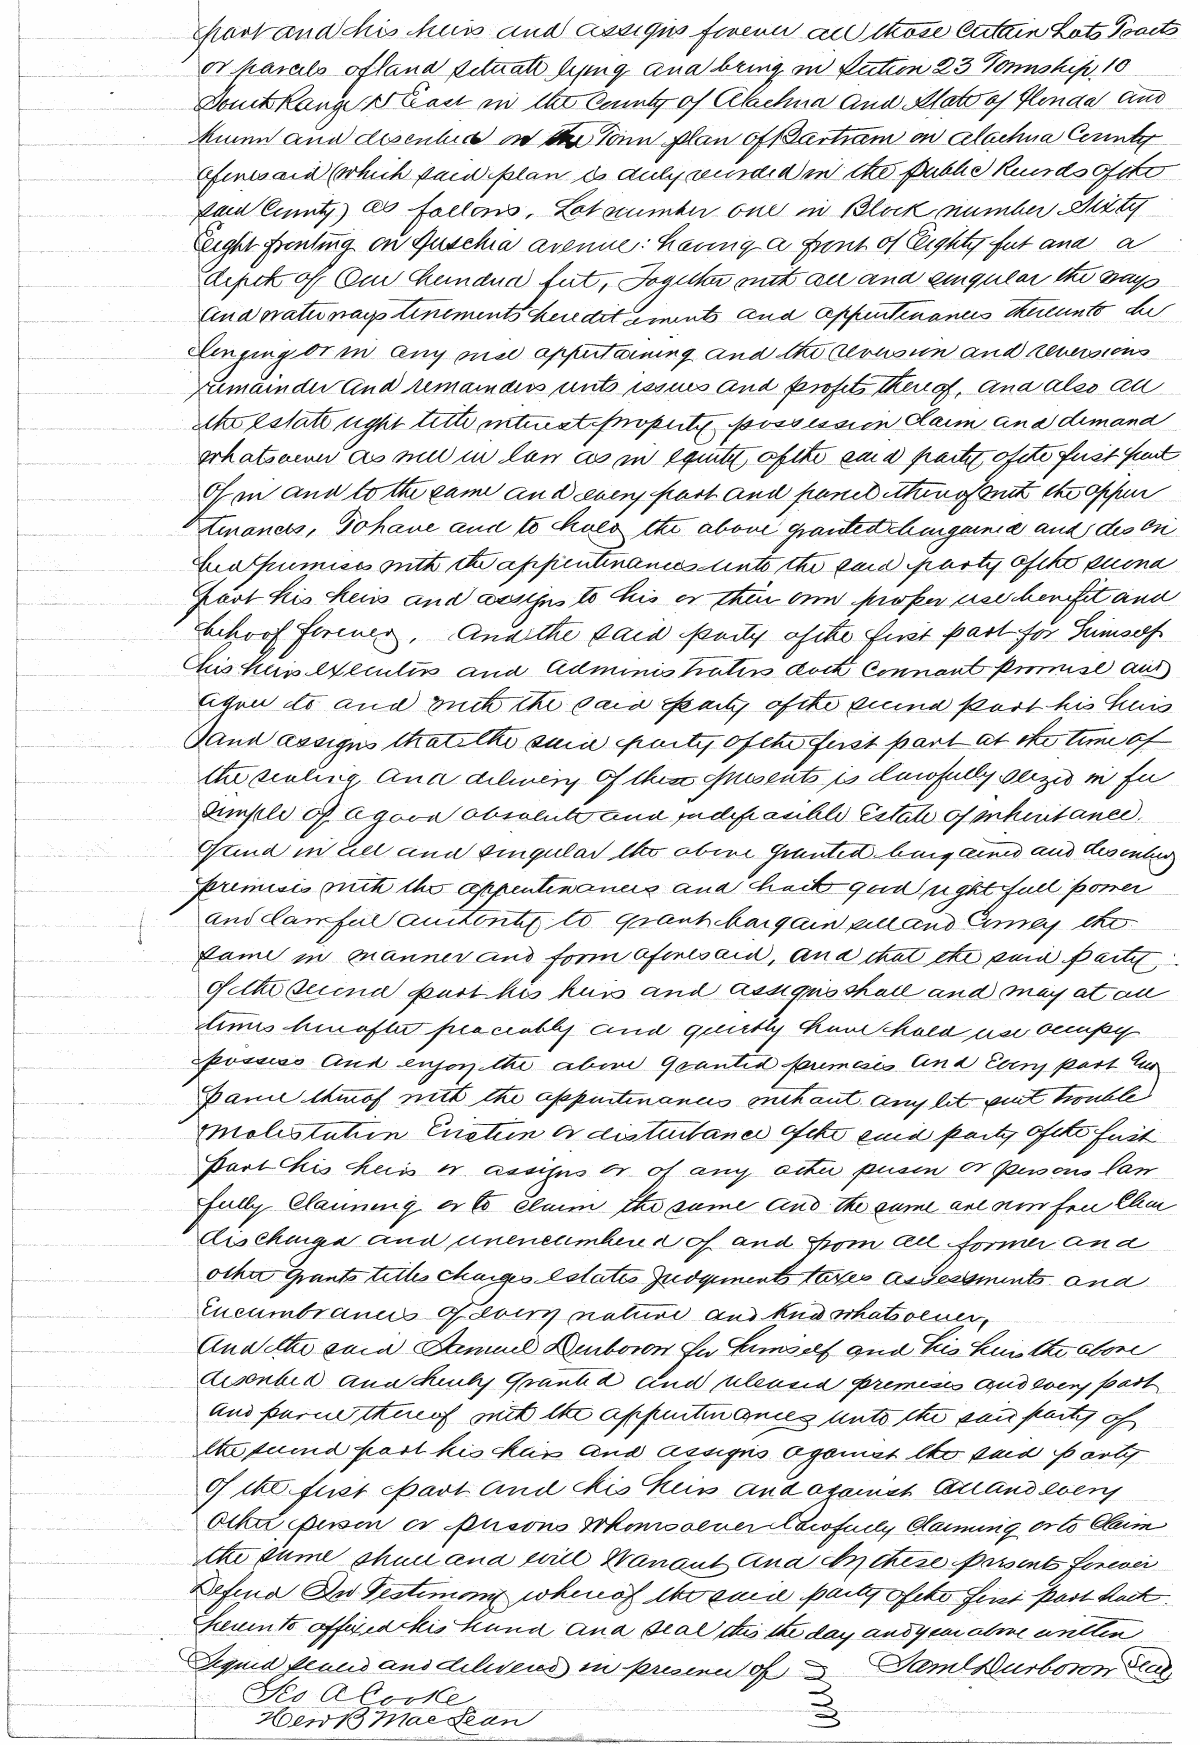 part and his heirs and assigns forever all those Certain Lots Tracts
or parcels of land situate lying and being in Section 23 Township 10
South Range East in the County of Alachua and State of Florida and
Known and described on the Town plan of Bartram on Alachua County
aforesaid (which said plan is duly recorded in the Public Records of the
said County) as follows. Lot number one in Block number Sixty
Eight fronting on Fuschia avenue: having a front of Eighty feet and a
depth of One hundred feet, Together with all and singular the ways
and waterways tenements heredit aments and appertenances thereunto be
longing or in any wise appertaining and the reversion and reversions
remainder and remainders rents issues and profits thereof, and also all
the estate right title interest property possession claim and demand
whatsoever as well in law as in equity of the said party of the first part
of in and to the same and every part and parcel thereof with the appur
tenances, To have and to hold the above granted bargained and descri
bed premises with the appertenances unto the said party of the second
part his heirs and assigns to his or their own proper use benefit and
behoof forever. And the said party of the first part for himself
his heirs executors and Administrators doth Covenant promise and
agree to and with the said party of the second part his heirs
and assigns that the said party of the first part at the time of
the sealing and delivery of these presents is lawfully seized in fee
simple of a good absolute and indefeasible Estate of inheritance.
of and in all and singular the above granted bargained and described
premises with the appertenances and hath good right full power
and lawful authority to grant bargain sell and Convey the
same in manner and form aforesaid, and that the said party
of the second part his heirs and assigns shall and may at all
times hereafter peaceably and quietly have hold use occupy
possess and enjoy the above granted premises and Every part and
parcel thereof with the appurtenances without any let suit trouble
Molestation Eviction or disturbance of the said party of the first
part his heirs or assigns or of any other person or persons law
fully Claiming or to claim the same and the same are now free Clear
discharged and unencumbered of and from all former and
other grants titles charges estates Judgements taxes assessments and
Encumbrances of every nature and kind whatsoever,
And the said Samuel Durborow for himself and his heirs the above
described and hereby granted and released premises and every part
and parcel thereof with the appurtenances unto the said party of
the second part his heirs and assigns against the said party
of the first part and his heirs and against all and every
other person or persons whomsoever lawfully Claiming or to Claim
the same shall and will Warrant and by these presents forever
Defend In Testimony whereof the said party of the first part hath
hereunto affixed his hand and seal this the day and year above written
Signed sealed and delivered in presence of Saml Durborow Seal
Geo A Cooke
Hew B MacLean